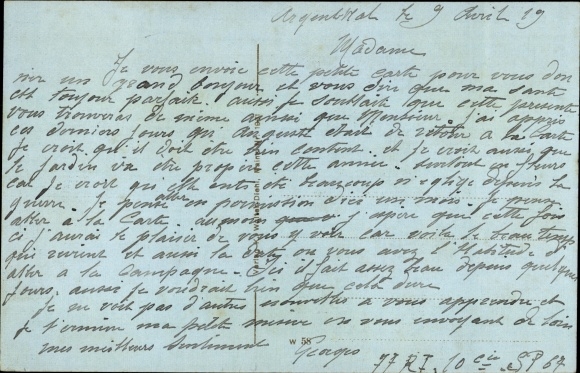 Argenthal le 9 Avril 19
Madame
Je vous envoie cette petite carte pour vous don
ner un grand bonjour et vous dire que ma santé
est toujour parfait. aussi je souhait que cette présente
vous trouveras de même ainsi que Monsieur. j'ai appris
ces derniers jours qu' était de retour à la Carte
je croit qu'il doit être bien content. et je croit aussi que
le jardin va être propre cette année. surtout en fleurs
car je croit qu'il a été beaucoup négligé depuis la
guerre. Je aller en permission d'ici un mois. je pense
aller a la Carte au moins j'spère que cette fois
ci j'aurai le plaisir de vous y voir car voila le beau temps
qui revient et aussi la ou vous avez l'Habitud.
aller a la Campagne. Ici il fait assez beau depuis quelques
Jours. aussi je voudrait bien que cela dure
Je ne voit pas d'autres nouvelles a vous apprendre et
Je termine ma petite en vous envoyant de loin
mes meilleurs Sentiment Georges
W 58
77 RI. 10 cie SP 67